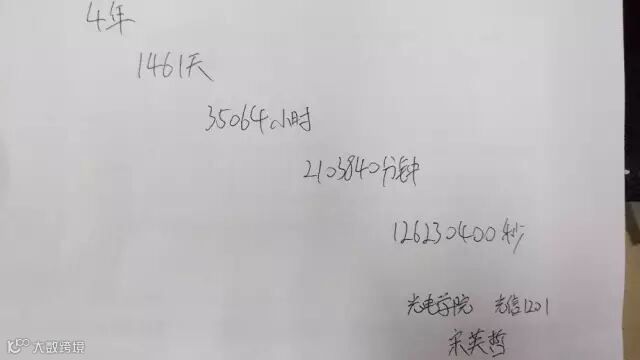 4年
1461天
35064小时
2103840分钟
126230400秒
光电学院 光信1201
宋英哲
大数跨境